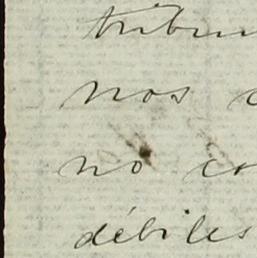 tribun
nos c
no co
débiles